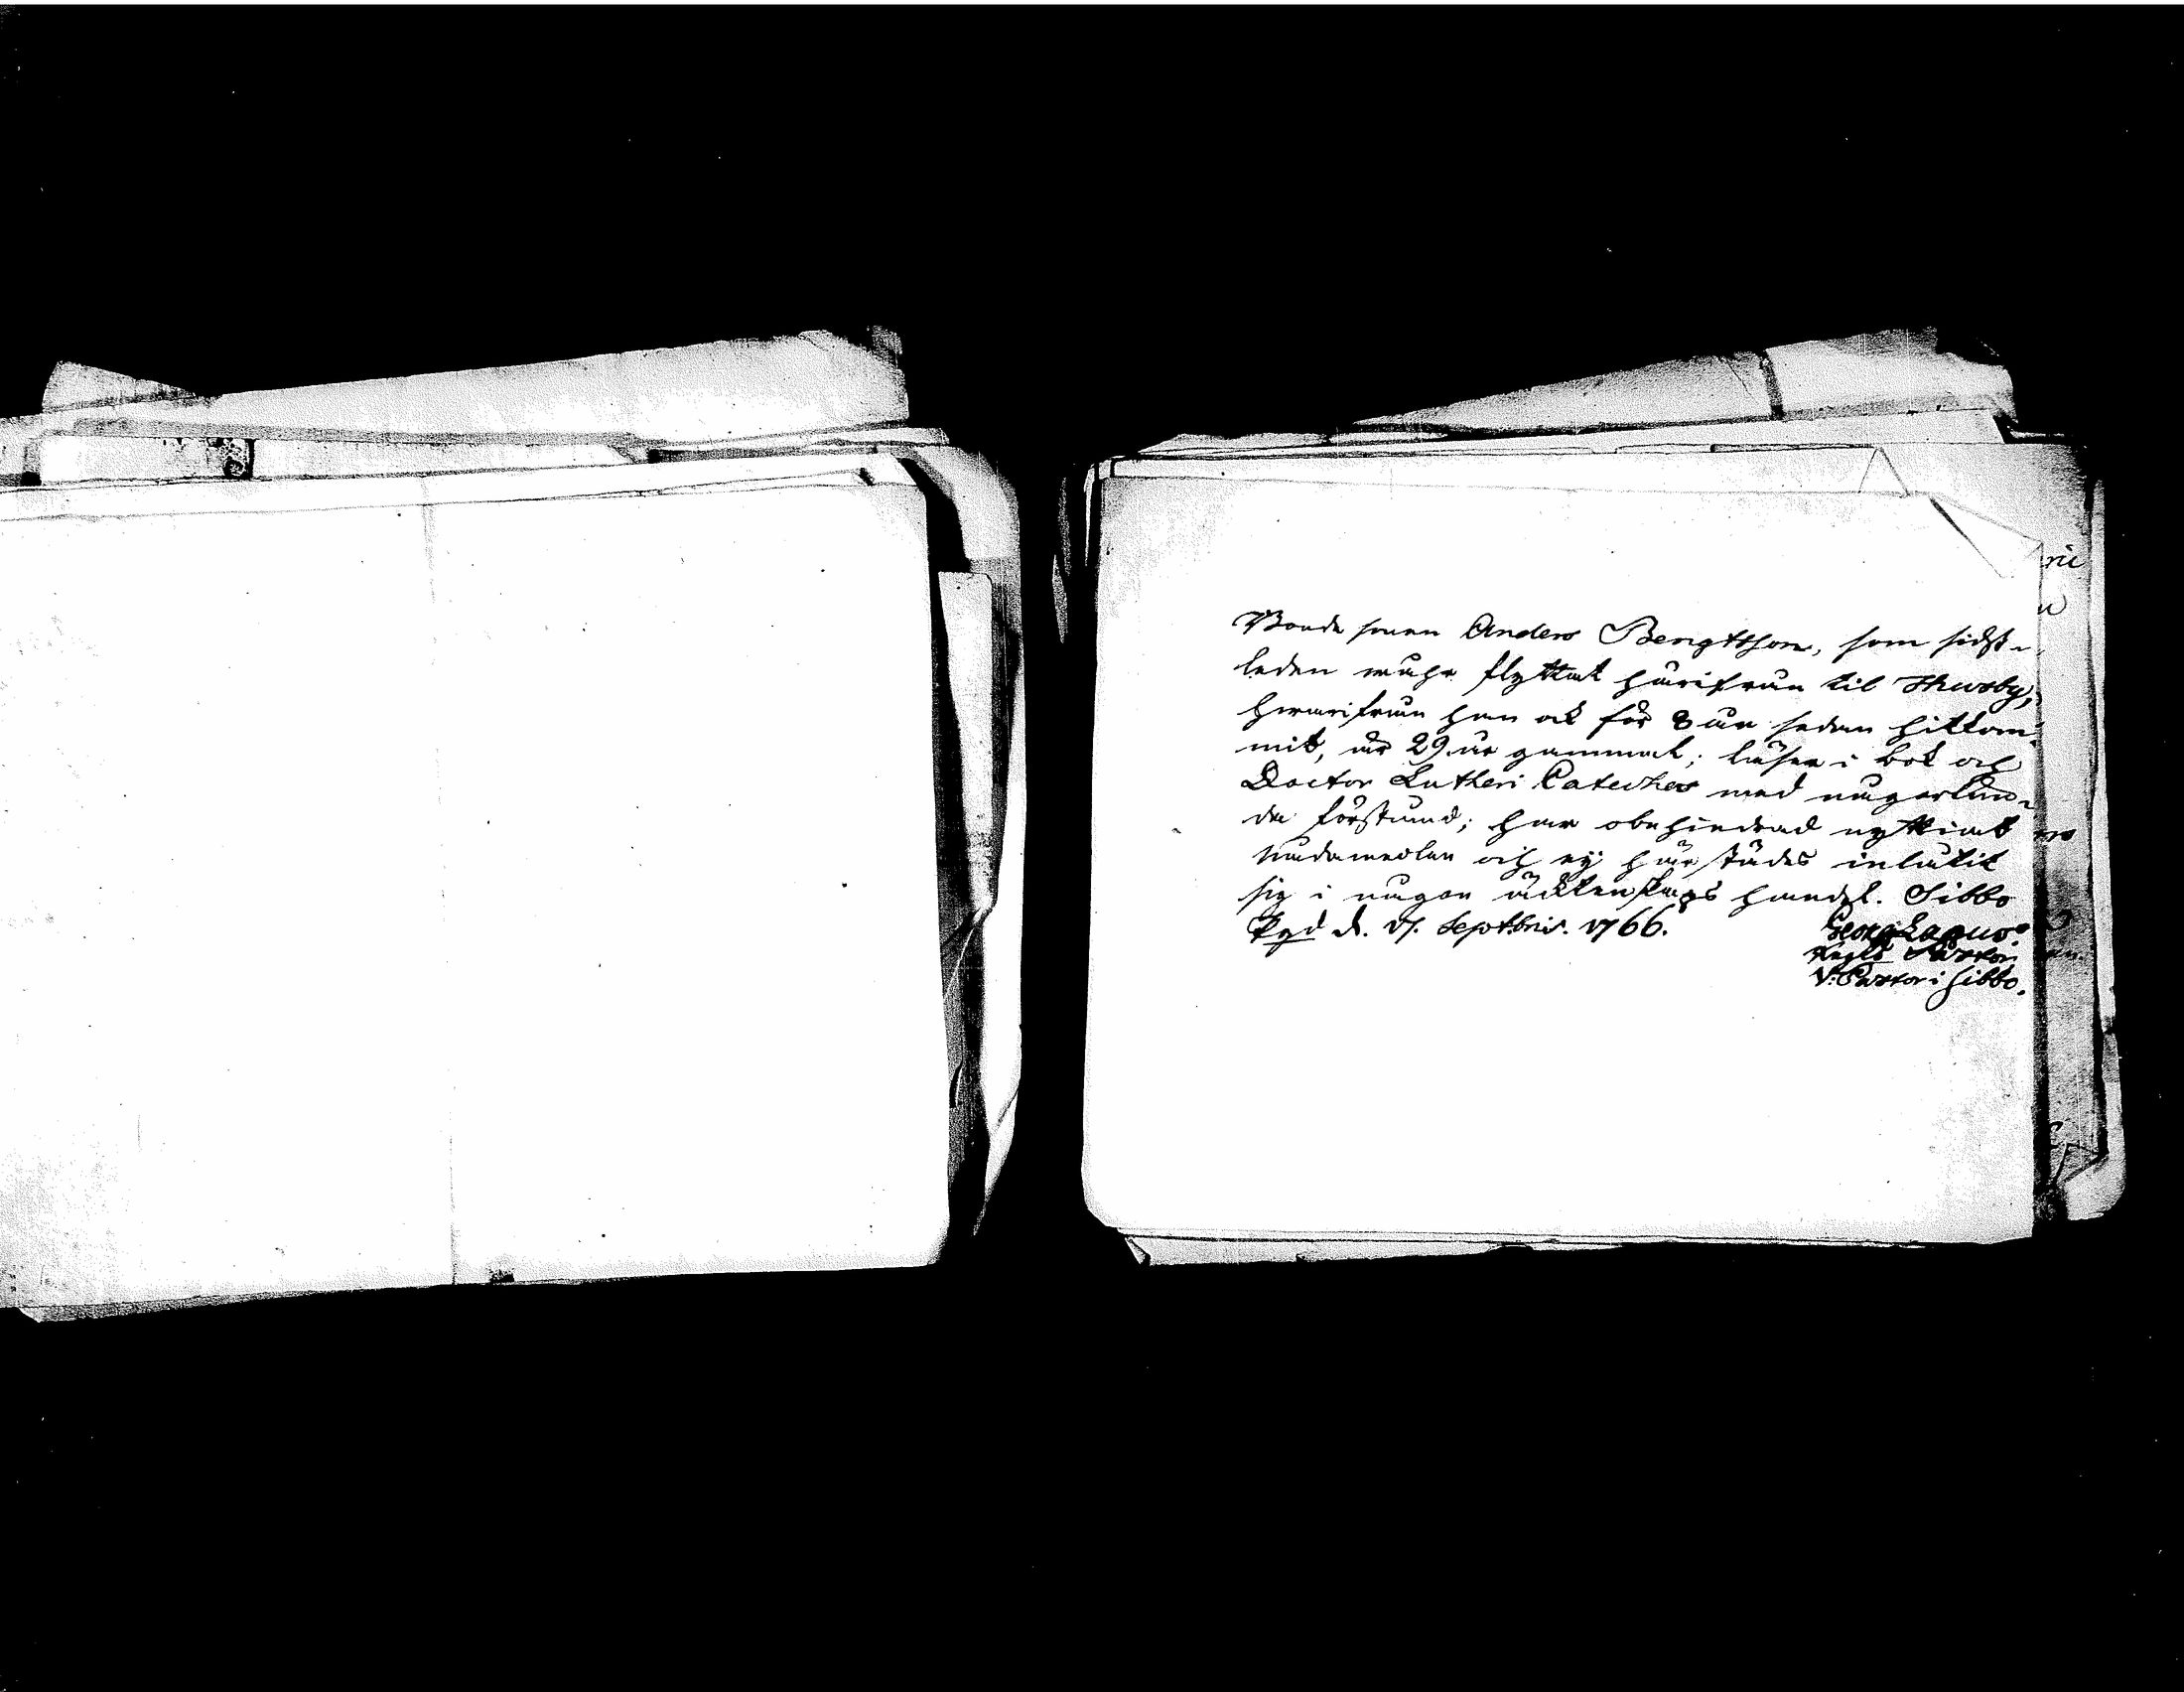 Bonde sonen Anders Bengtsson, som sidst-
leden wåhr flyttat härifrån til Husby,
hwarifrån han ock för 8 år sedan hitkom-
mit, är 29 år gammal; läser i bok och
Doctor Lutheri Cateches med någorlun-
da förstånd; har obehindrad nyttiat
nådamedlen och ej här städes inlåtit
sig i någon äcktenskaps handel. Sibbo
Pgd d. 17. Septbris. 1766.
Georg
Pastor
V. Pastor i Sibbo.